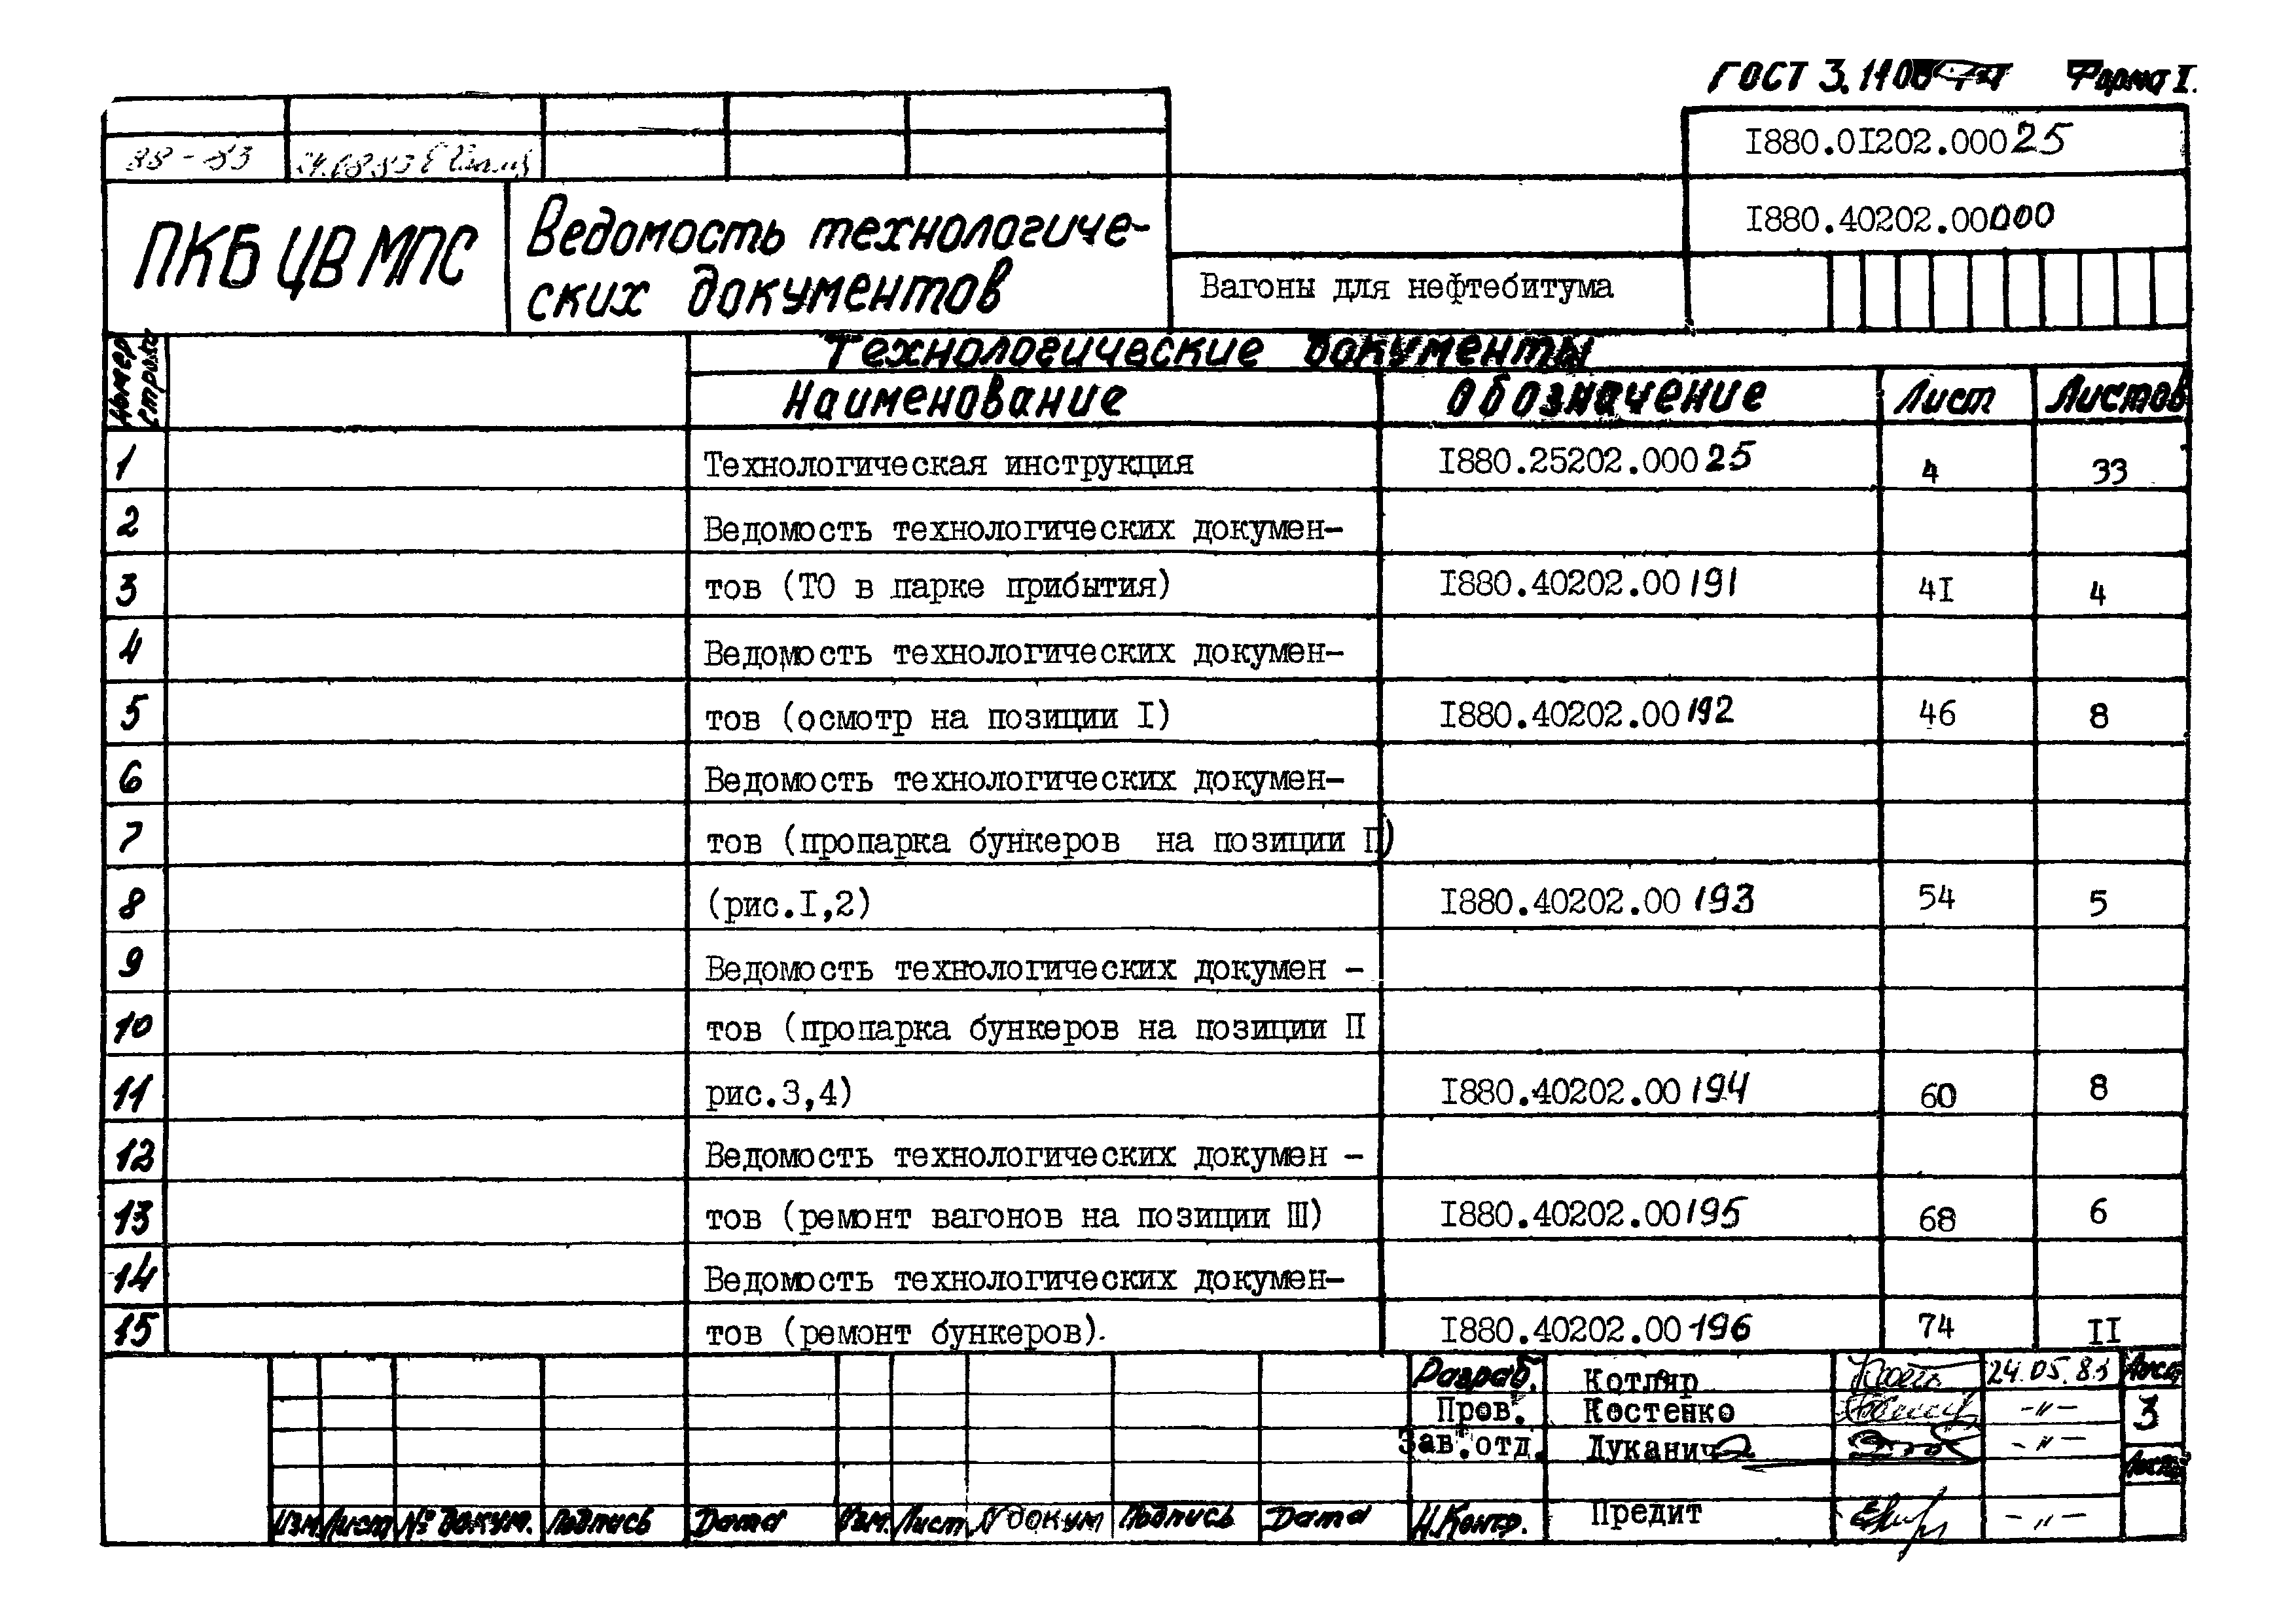 ГОСТ 3.1106-74 Форма I.
I880.0I202.00025
88-83
I880.40202.00000
ПКБ ЦВ МПС
Ведомость технологиче-
ских документов
Вагоны для нефтебитума
Номер строки
Технологические документы
Наименование Обозначение Лист Листов
1 Технологическая инструкция I880.25202.00025 4 33
2 Ведомость технологических докумен-
3 тов (ТО в парке прибытия) I880.40202.00191 4I 4
4 Ведомость технологических докумен-
5 тов (осмотр на позиции I) I880.40202.00192 46 8
6 Ведомость технологических докумен-
7 тов (пропарка бункеров на позиции П)
8 (рис.I,2) I880.40202.00193 54 5
9 Ведомость технологических докумен -
10 тов (пропарка бункеров на позиции П
11 рис.3,4) I880.40202.00194 60 8
12 Ведомость технологических докумен -
13 тов (ремонт вагонов на позиции Ш) I880.40202.00195 68 6
14 Ведомость технологических докумен-
15 тов (ремонт бункеров). I880.40202.00196 74 II
Разраб. Котляр 24.05.83 Лист
Пров. Костенко -"- 3
Зав.отд. Луканич -"-
Листов
Изм. Лист № докум. Подпись Дата Изм. Лист № докум Подпись Дата Н.Контр. Предит -"-